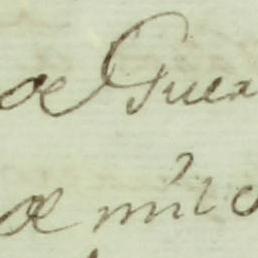 de Guer
de mil